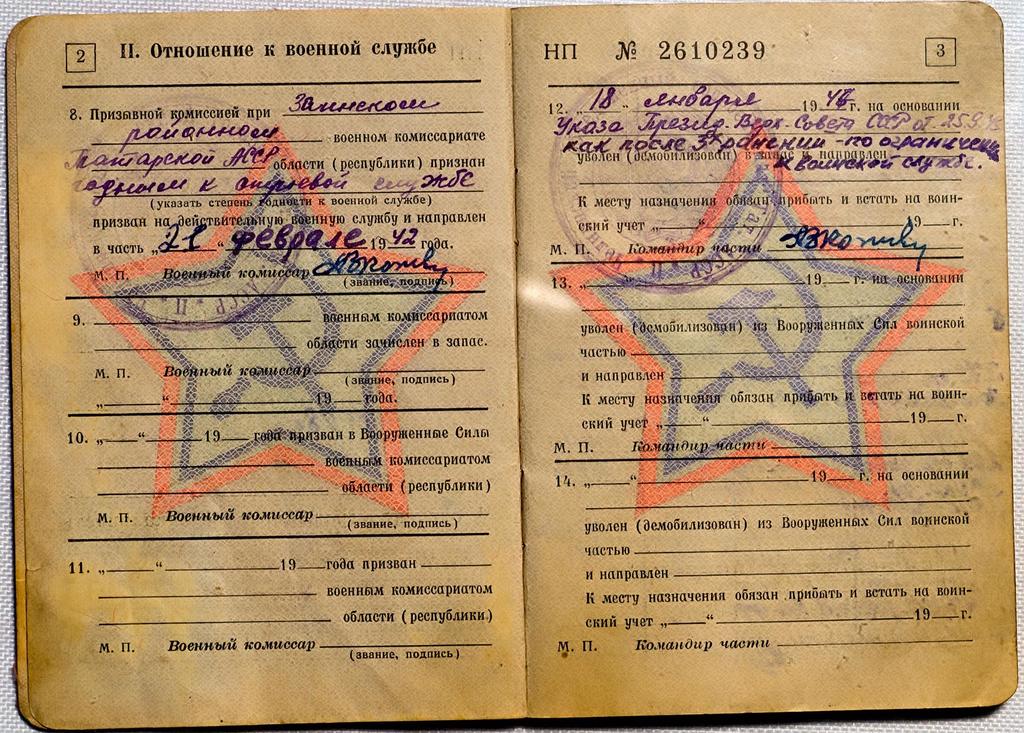 2
II. Отношение к военной службе
8. Призывной комиссией при Заинском
районном военном комиссариате
Татарской АССР области (республики) признан
годным к строевой службе
(указать степень годности к военной службе)
призван на действительную военную службу и направлен
в часть „21“ феврале 1942 года.
М. П. Военный комиссар
(звание, подпись)
9. военным комиссариатом
области зачислен в запас.
М. П. Военный комиссар
(звание, подпись)
„ “ 19 года.
10. „ “ 19 года призван в Вооруженные Силы
военным комиссариатом
области (республики)
М. П. Военный комиссар
(звание, подпись)
11. „ “ 19 года призван
военным комиссариатом
области (республики)
М. П. Военный комиссар
(звание, подпись)
НП № 2610239
3
12. „18“ января 194 г. на основании
Указа Презид. Верх. Совета СССР от 25.9.45
как после 3х ранений - по ограничению
уволен (демобилизован) в запас и направлен
к воинской службе.
К месту назначения обязан прибыть и встать на воин-
ский учет „ “ 19 г.
М. П. Командир части
13. „ “ 19 г. на основании
уволен (демобилизован) из Вооруженных Сил воинской
частью
и направлен
К месту назначения обязан прибыть и встать на воин-
ский учет „ “ 19 г.
М. П. Командир части
14. „ “ 19 г. на основании
уволен (демобилизован) из Вооруженных Сил воинской
частью
и направлен
К месту назначения обязан прибыть и встать на воин-
ский учет „ “ 19 г.
М. П. Командир части